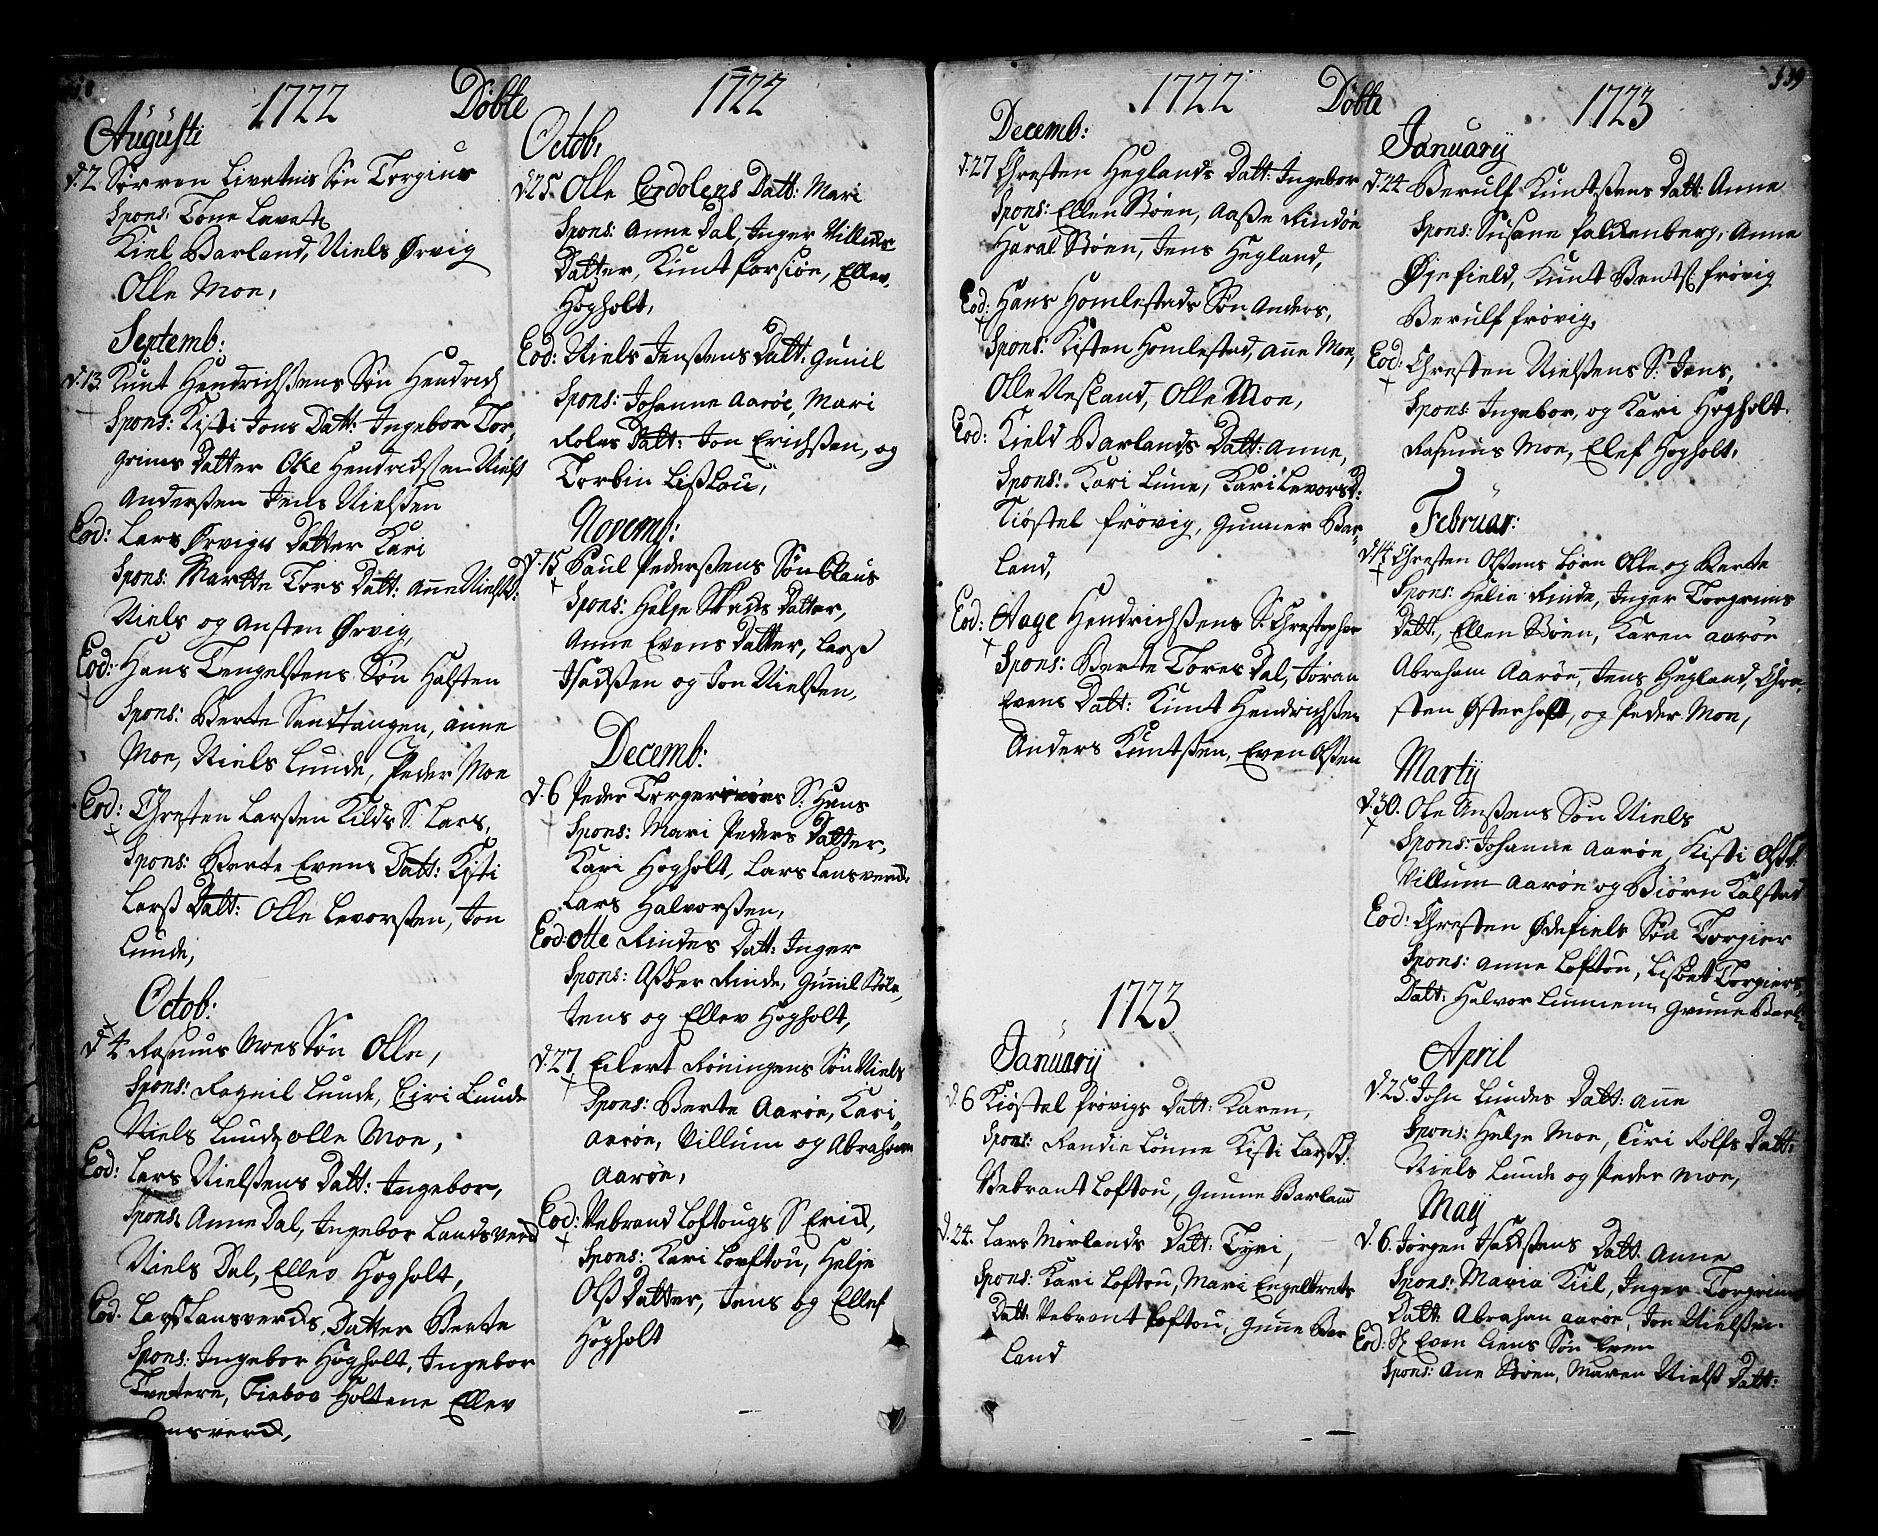 1722 Döbte
Augusti
d. 2. Sörren Livetnes Sön Torgius
Spons: Tone Levets
Kiel Barland, Niels Ørvig
Olle Moe,
Septemb:
d. 13. Knut Hendrichßens Sön Hendrich
Spons: Kisti Jons Datt: Ingebor Tor,
grims Datter Oke Hendrichsen Niels
Anderßen Jens Nielßen
Eod: Lars Ørvigs Datter Kari
Spons: Martte Tors Datt: Anne Nielsd:
Niels og Ansten Ørvig,
Eod: Hans Tengelßens Søn Halsten
Spons: Berte Sandtangen, Anne
Moe, Niels Lunde, Peder Moe
Eod: Chresten Larßen Kilds S. Lars,
Spons: Berte Evens Datt: Kisti
Larß Datt: Olle Levorßen, Jon
Lunde,
Octob:
d. 4 Rasmus Moes Søn Olle,
Spons: Ragnil Lunde, Ciri Lunde
Niels Lunde, Olle Moe,
Eod: Lars Nielßens Datt: Ingebor,
Spons: Anne Dal, Ingebor Landsverd
Niels Dal, Ellev Hogholt,
Eod: Larß Lansverds Datter Berte
Spons: Ingebor Hogholt, Ingebor
Tvetene, Holtene Ellev
Lansverd,
1722
Octob:
d. 25. Olle Cordolens Datt: Mari
Spons: Anne Dal, Inger Villums
Datter, Knut Forsiøn, Ellev,
Hogholt,
Eod: Niels Jenßens Datt: Gunil
Spons: Johanne Aarøe, Mari
Roles Datt: Jon Erichßen, og
Torbin Lißlou,
Novemb:
d. 15 Paul Pederßens Søn Claus
Spons: Helje Datter,
Anne Evens Datter, Larß
Isachßen og Jon Nielßen,
Decemb:
d. 6 Peder S: Hans
Spons: Mari Peders Datter,
Kari Hogholt, Lars Lansverd,
Lars Halvorßen,
Eod: Otte Rindes Datt: Inger
Spons: Aßber Rinde, Gunil Bøle,
Jens og Ellev Hogholt,
d. 27 Eilert Røningens Søn Niels
Spons: Berte Aarøe, Kari
Aarøe, Villum og Abraham
Aarøe,
Eod: Vebrand Loftougs S. Erich,
Spons: Kari Loftou, Helje
Olß Datter, Jens og Ellef
Hogholt
1722 Döbte
Decemb:
d. 27 Chresten Heglands Datt: Ingebor
Spons: Ellen Bøen, Aaße Rindøe
Haral Bøen, Jens Hegland,
Eod: Hans Homlestads Søn Anders,
Spons: Kisten Homlestad, Anne Moe,
Olle Nesland, Olle Moe,
Eod: Kield Barlands Datt: Anne,
Spons: Kari Lune, Kari Levorsd:
Kiøstel Frøvig, Gunner Bar,
Land,
Eod: Aage Hendrichßens S. Chrestopher
Spons: Berte Tores Dal, Joran
Evens Datt: Knut Hendrichßen
Anders Knutßen, Even Olßen
1723
Januarij
d. 6 Kiøstel Frøvigs Datt: Karen,
Spons: Randie Lønne Kisti Larßd:
Vebrant Loftou, Gunne Barland
d. 24. Lars Morlands Datt: Tyri,
Spons: Kari Loftou, Mari Engelbrets
Datt: Vebrant Loftou, Gune Bar
Land
1723 539
Januarij
d. 24 Berulf Knutßens Datt: Anne
Spons: Susane Falkenberg, Anne
Øiefield, Knut Bentß: Frøvig
Berulf Frøvig,
Eod: Chresten Nielßens S: Jens,
Spons: Ingebor, og Kari Hogholt,
Rasmus Moe, Elef Hogholt,
Februar:
d. 14 Chresten Olßens børn Olle og Berte
Spons: Helie Rinde, Inger Torgrims
Datt:, Ellen Bøen, Karen Aarøe
Abraham Aarøe, Jens Hegland, Chre,
sten Østerholt, og Peder Moe,
Martij
d. 30. Ole Anßens Søn Niels
Spons: Johanne Aarøe, Kisti Olßd:
Villum Aarøe og Biørn Kalstad
Eod: Chresten Ødefiels Søn Torgier
Spons: Anne Loftou, Lisbet Torgiers,
Datt: Halvor Lunnem, Gunne Barl,
April
d. 25. John Lundes Datt: Anne
Spons: Helje Moe, Ciri Rolfs Datt:
Niels Lunde og Peder Moe,
Maij
d. 6. Jørgen Isachßens Datt: Anne
Spons: Maria Kiil, Inger Torgrims
Datt: Abraham Aarøe, Jon Nielßen
Eod: Sl. Even Liens Søn Even
Spons: Ane Bøen, Maren Nielß Datt: